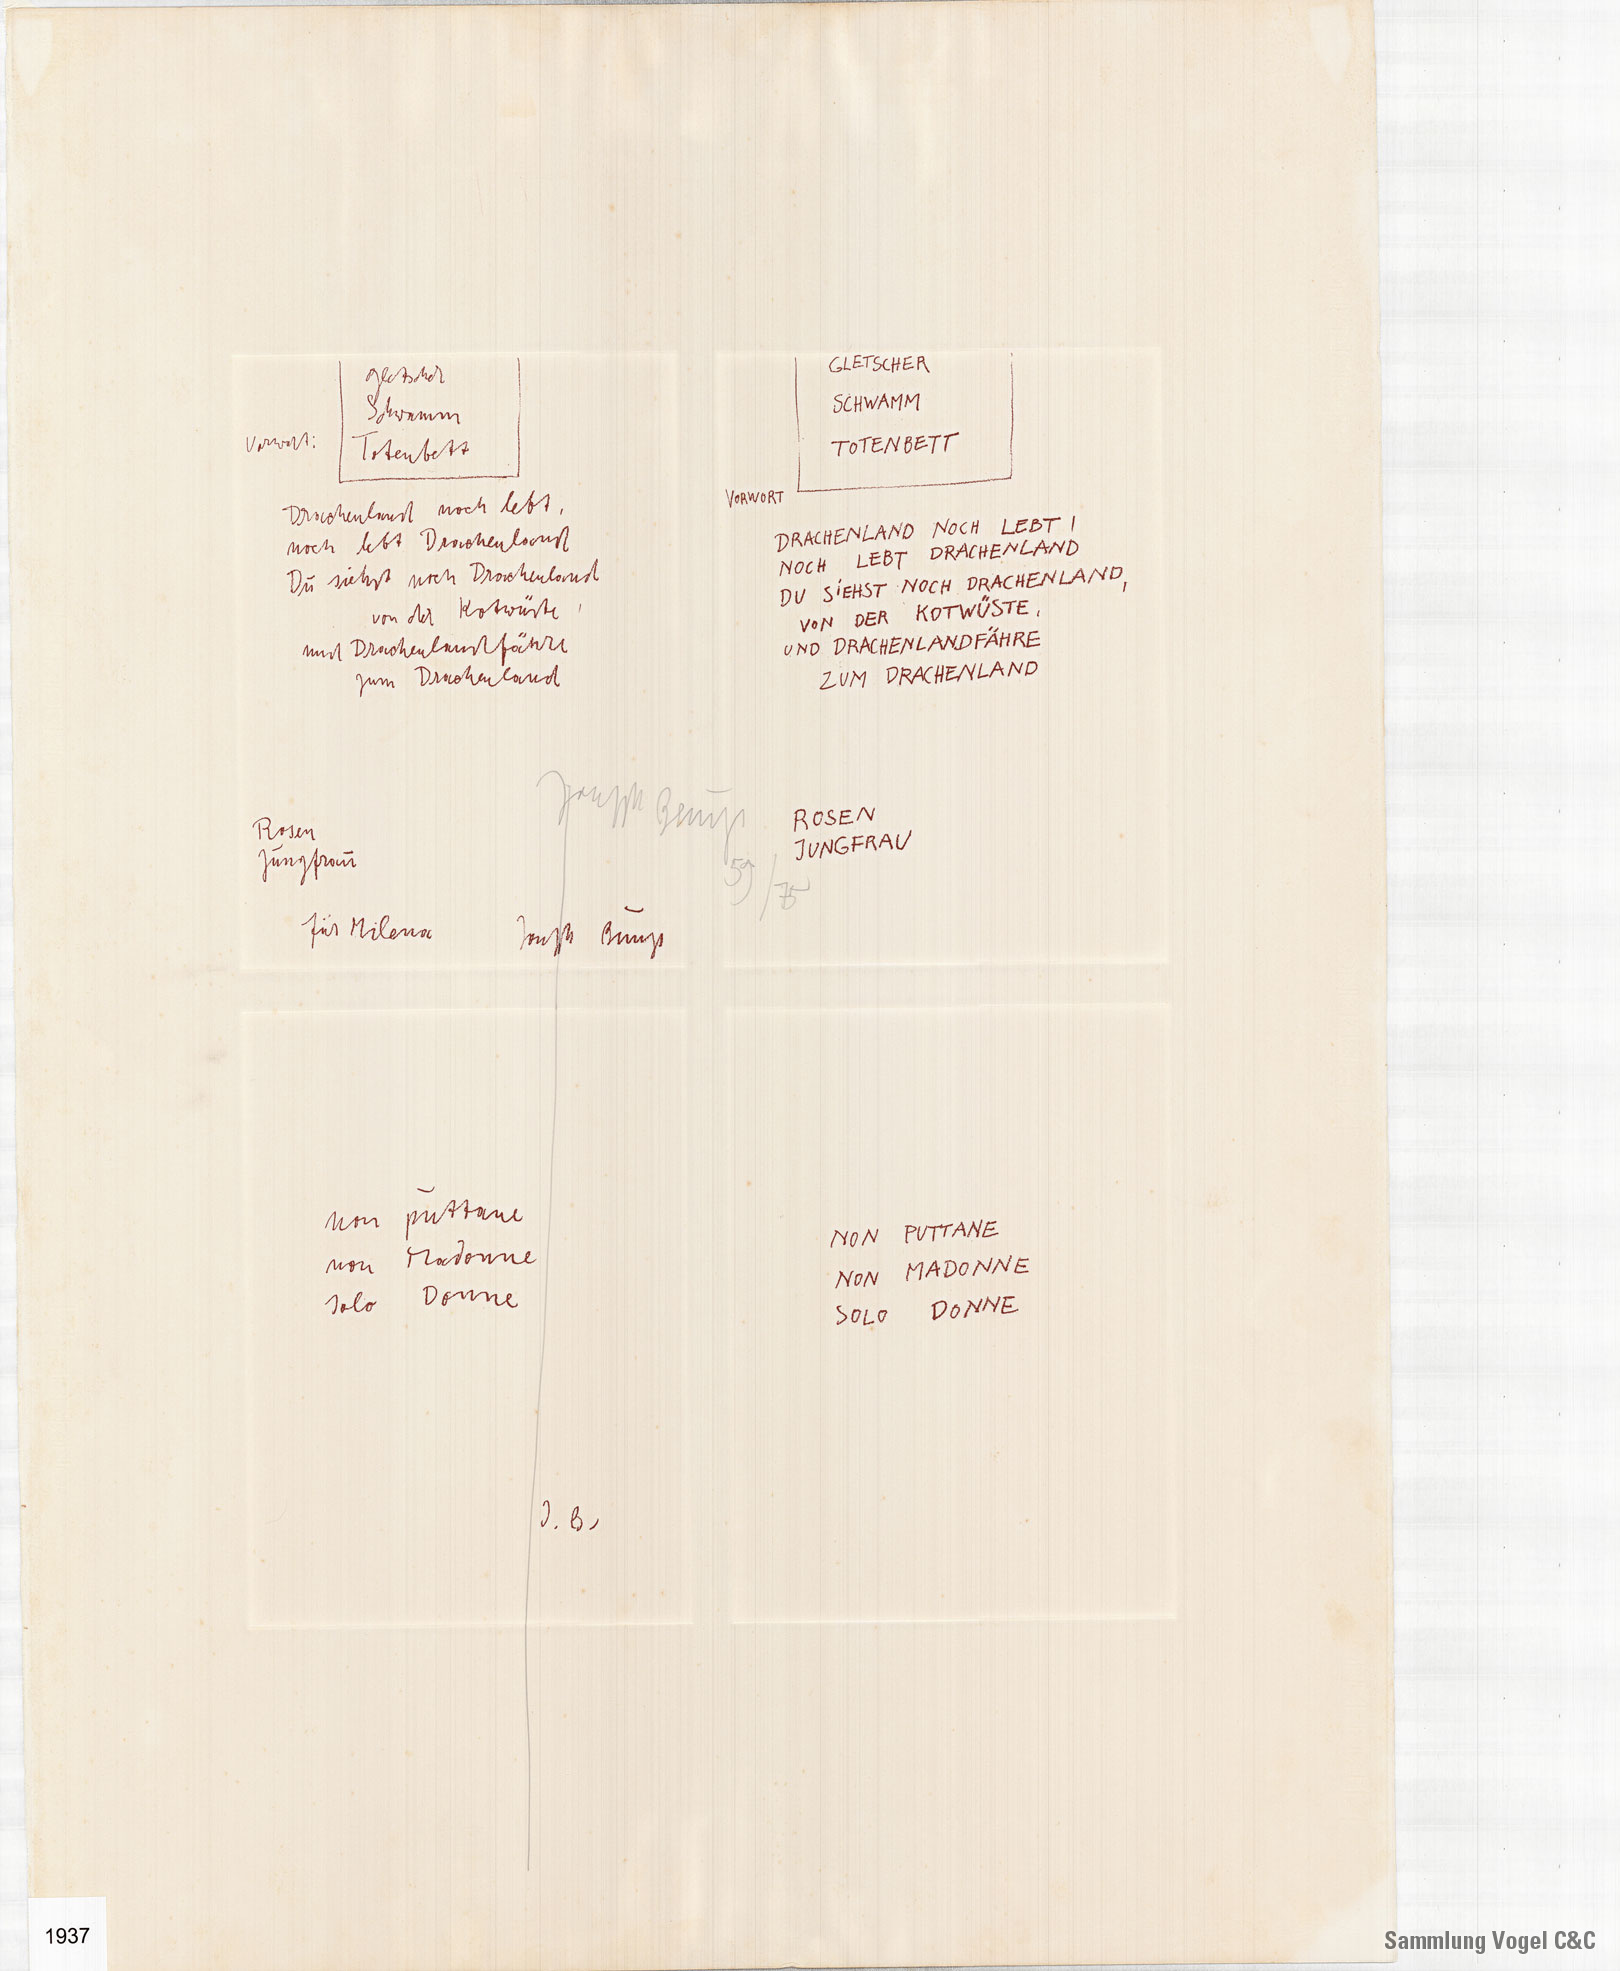 gletscher
Schwamm
Vorwort:
Totenbett
Drachenland noch lebt,
noch lebt Drachenland
Dū siehst noch Drachenland
von der Kotwüste,
und Drachenlandfähre
zum Drachenland
Rosen
Jūngfraū
für Milena
Joseph Beūys
GLETSCHER
SCHWAMM
TOTENBETT
VORWORT
DRACHENLAND NOCH LEBT,
NOCH LEBT DRACHENLAND
DU SiEHST NOCH DRACHENLAND,
VON DER KOTWÜSTE,
UND DRACHENLANDFÄHRE
ZUM DRACHENLAND
Joseph Beūys
59/75
ROSEN
JUNGFRAU
non pūttane
non Madonne
solo Donne
J. B.
NON PUTTANE
NON MADONNE
SOLO DONNE
1937
Sammlung Vogel C&C